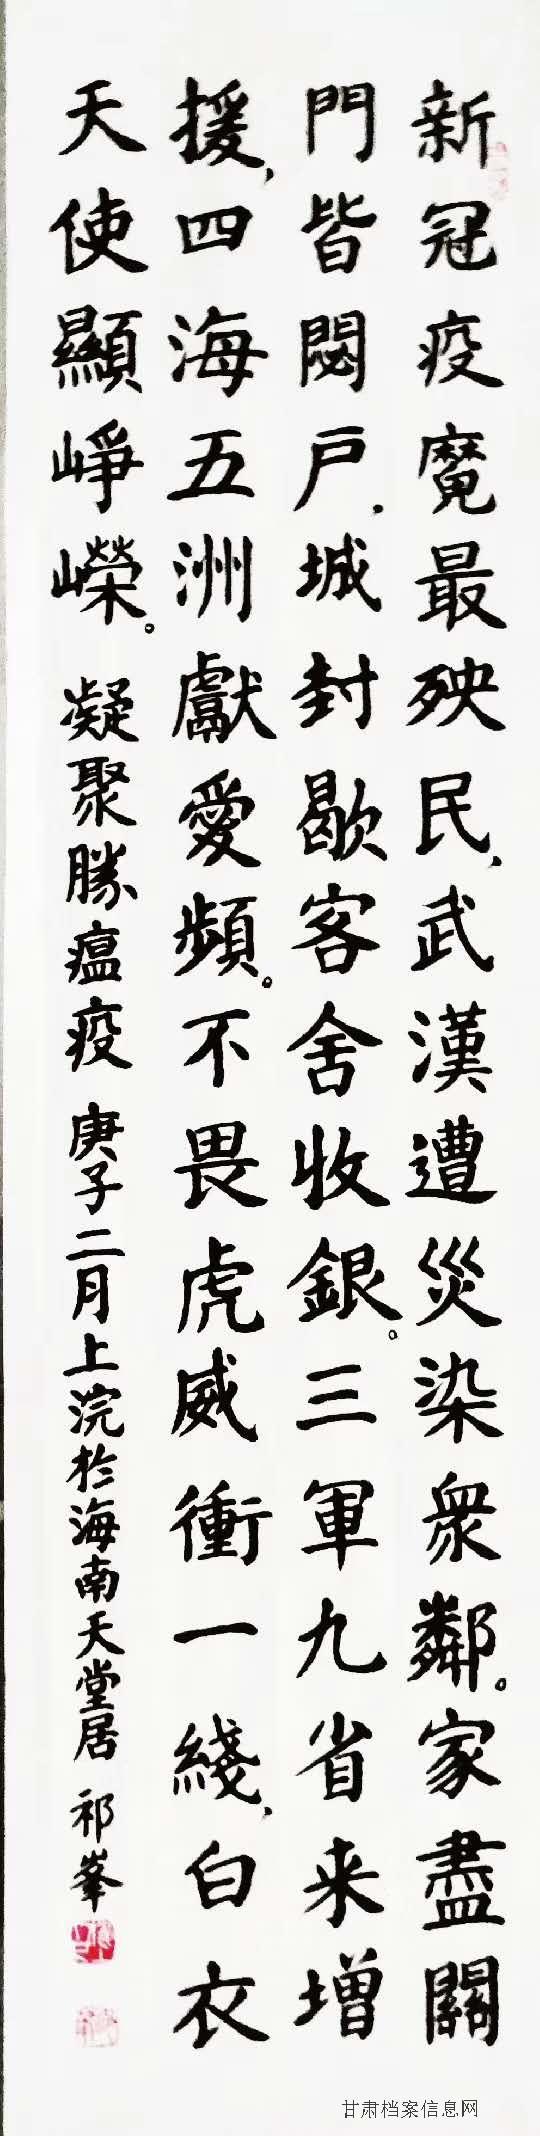 新冠疫魔最殃民，武漢遭災染衆鄰。家盡關
門皆閟戶，城封歇客舍收銀。三軍九省来增
援，四海五洲獻愛頻。不畏虎威衝一綫，白衣
天使顯崢嶸。 凝聚勝瘟疫 庚子二月上浣於海南天堂居 祁峯
甘肃档案信息网